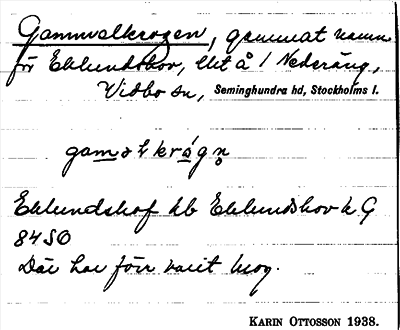 Gammalkrogen, gammat namn
för Eklundshov, litt å 1 Nederäng,
Vidbo sn, Seminghundra hd, Stockholms l.
gamalkrógn̥
Eklundshof hb Eklundshov h G
84 SO
Där har förr varit krog.
KARIN OTTOSSON 1938.